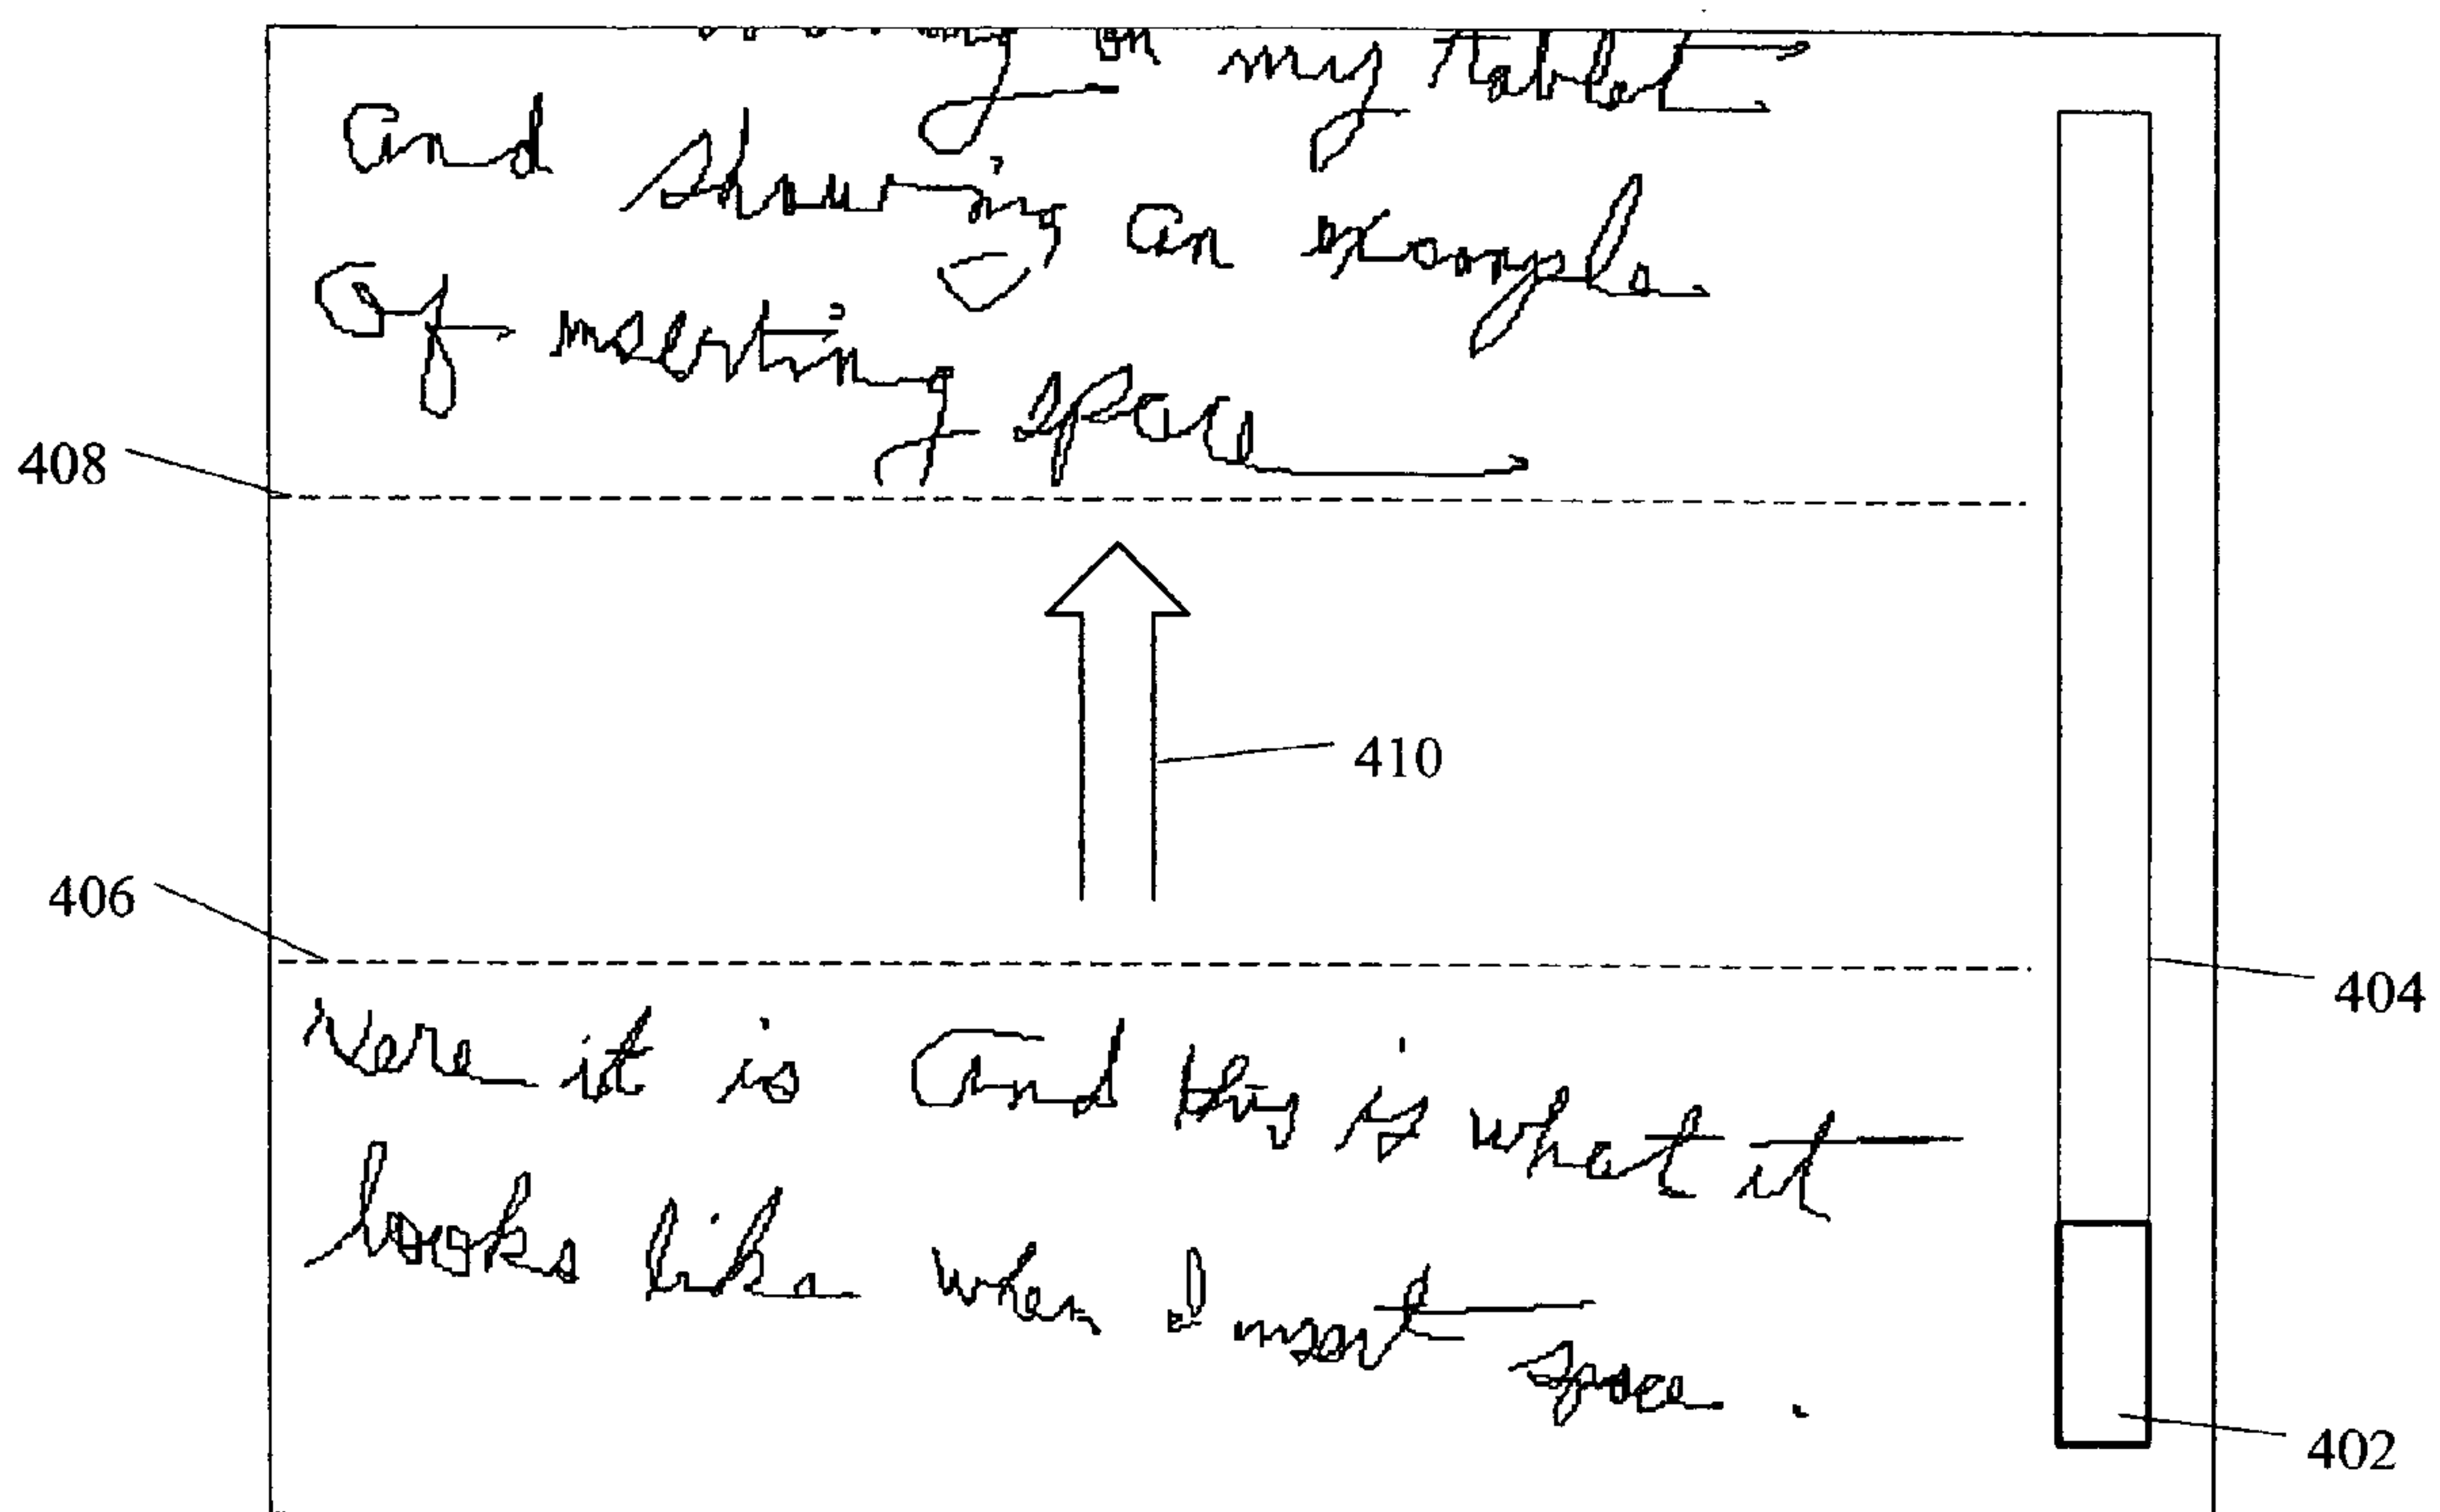 my tablet
and showing an example
of inserting space
408
410
406
404
Here it is and this is what it
looks like when I insert space .
402